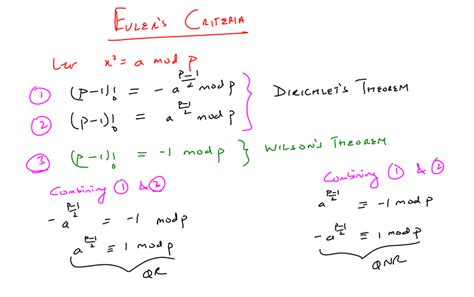 EULER'S CRITERIA
Let x² = a mod p
① (p-1)! = - a^(p-1)/2 mod p
② (p-1)! = a^(p-1)/2 mod p
} DIRICHLET'S THEOREM
③ (p-1)! = -1 mod p } WILSON'S THEOREM
Combining ① & ②
-a^(p-1)/2 = -1 mod p
a^(p-1)/2 ≡ 1 mod p
QR
Combining ① & ②
a^(p-1)/2 = -1 mod p
-a^(p-1)/2 ≡ 1 mod p
QNR